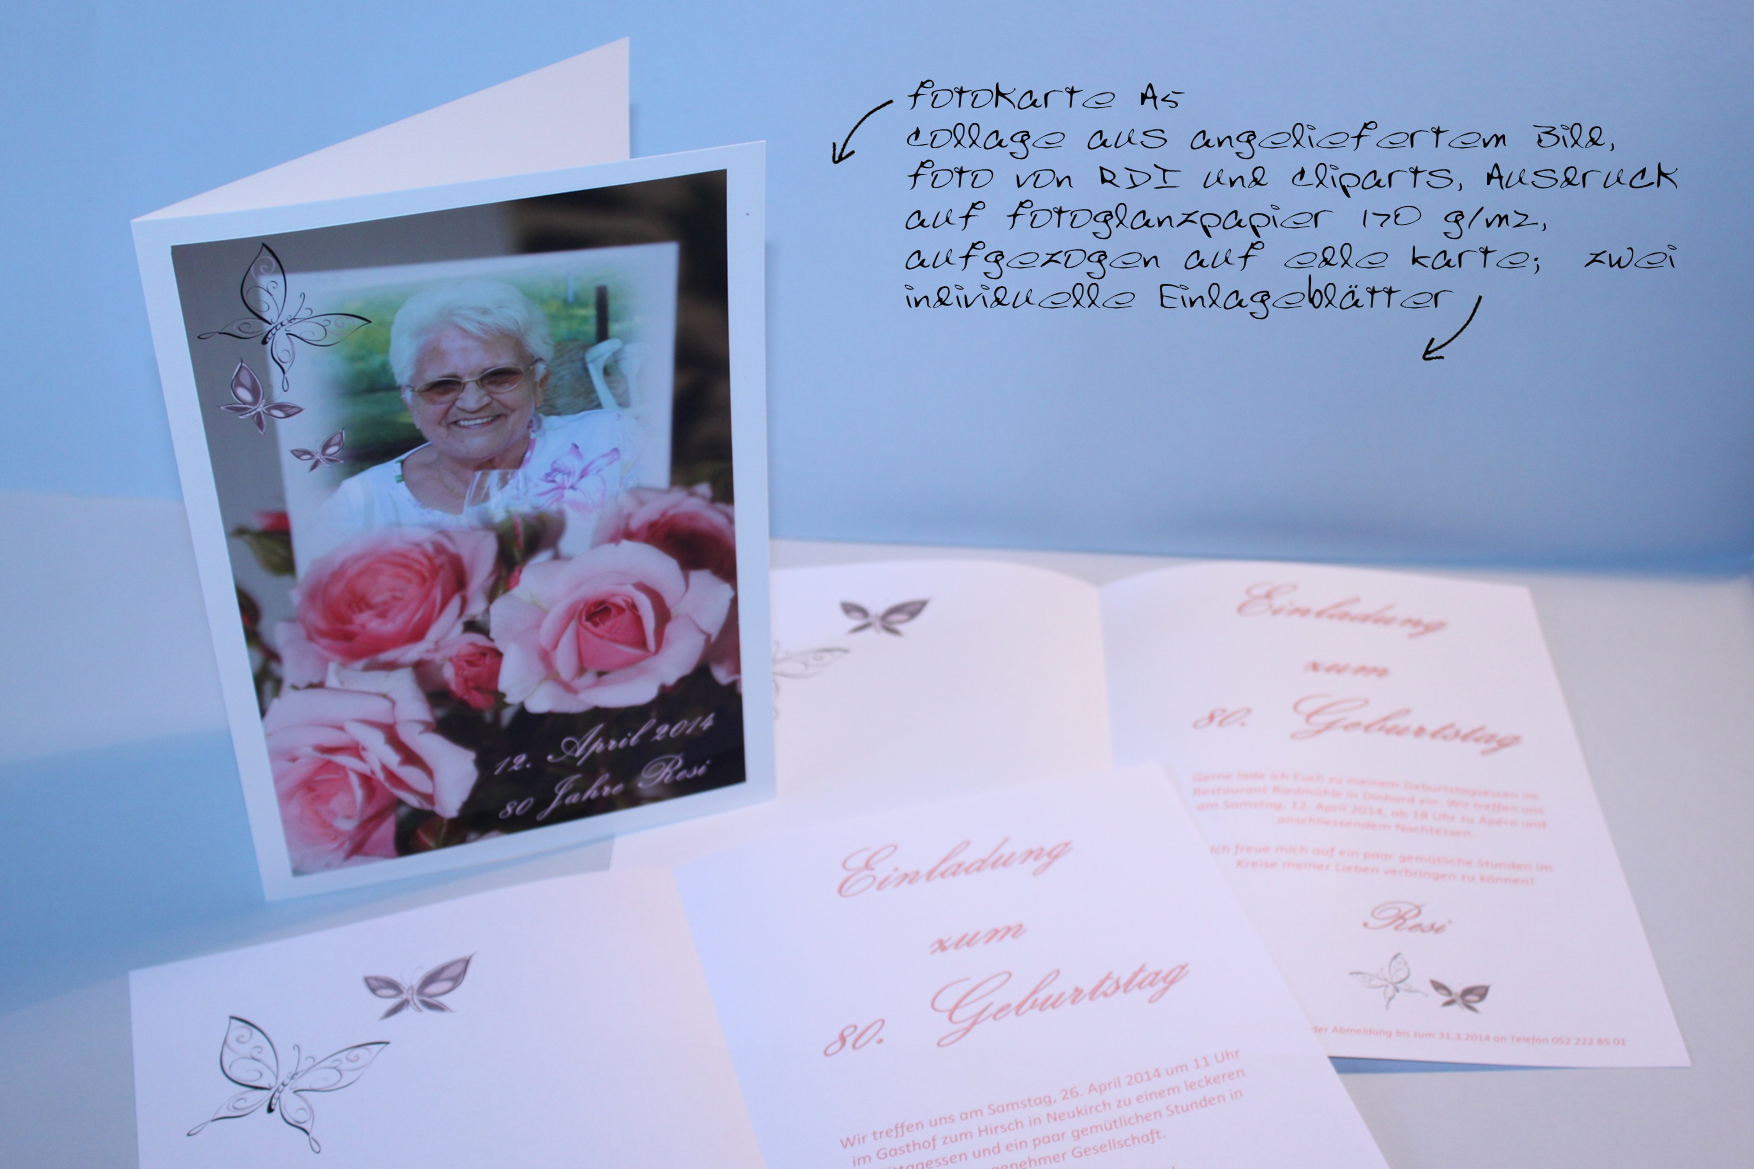 Fotokarte A5
Collage aus angeliefertem Bild,
Foto von RDI und Cliparts, Ausdruck
auf Fotoglanzpapier 170 g/m2,
aufgezogen auf edle Karte; zwei
individuelle Einlageblätter
12. April 2014
80 Jahre Resi
Einladung
zum
80. Geburtstag
Gerne lade ich Euch zu meinem Geburtstagsessen im
Restaurant Riedmühle in Dinhard ein. Wir treffen uns
am Samstag, 12. April 2014, ab 18 Uhr zu Apéro und
anschliessendem Nachtessen.
Ich freue mich auf ein paar gemütliche Stunden im
Kreise meiner Lieben verbringen zu können!
Resi
der Abmeldung bis zum 31.3.2014 an Telefon 052 222 85 01
Einladung
zum
80. Geburtstag
Wir treffen uns am Samstag, 26. April 2014 um 11 Uhr
im Gasthof zum Hirsch in Neukirch zu einem leckeren
und ein paar gemütlichen Stunden in
Gesellschaft.